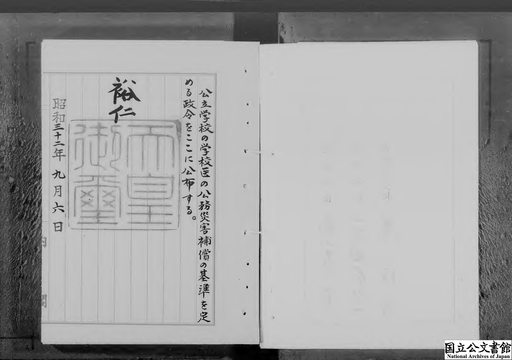 公立学校の学校医の公務災害補償の基準を定
める政令をここに公布する。
裕仁
天皇
御璽
昭和三十二年九月六日
内閣
国立公文書館
National Archives of Japan